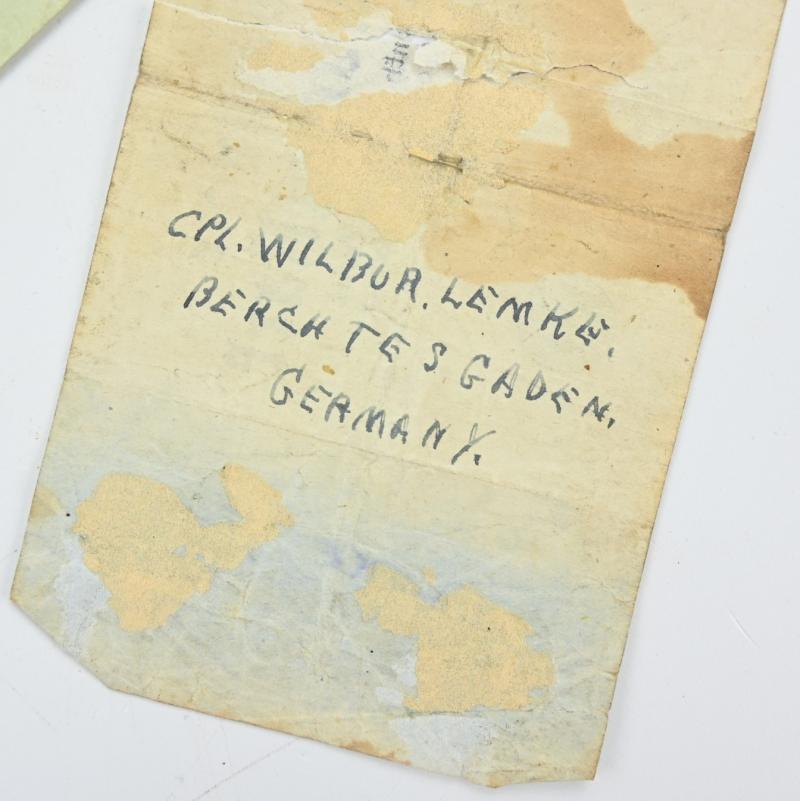 CPL. WILBUR. LEMKE.
BERCHTESGADEN.
GERMANY.